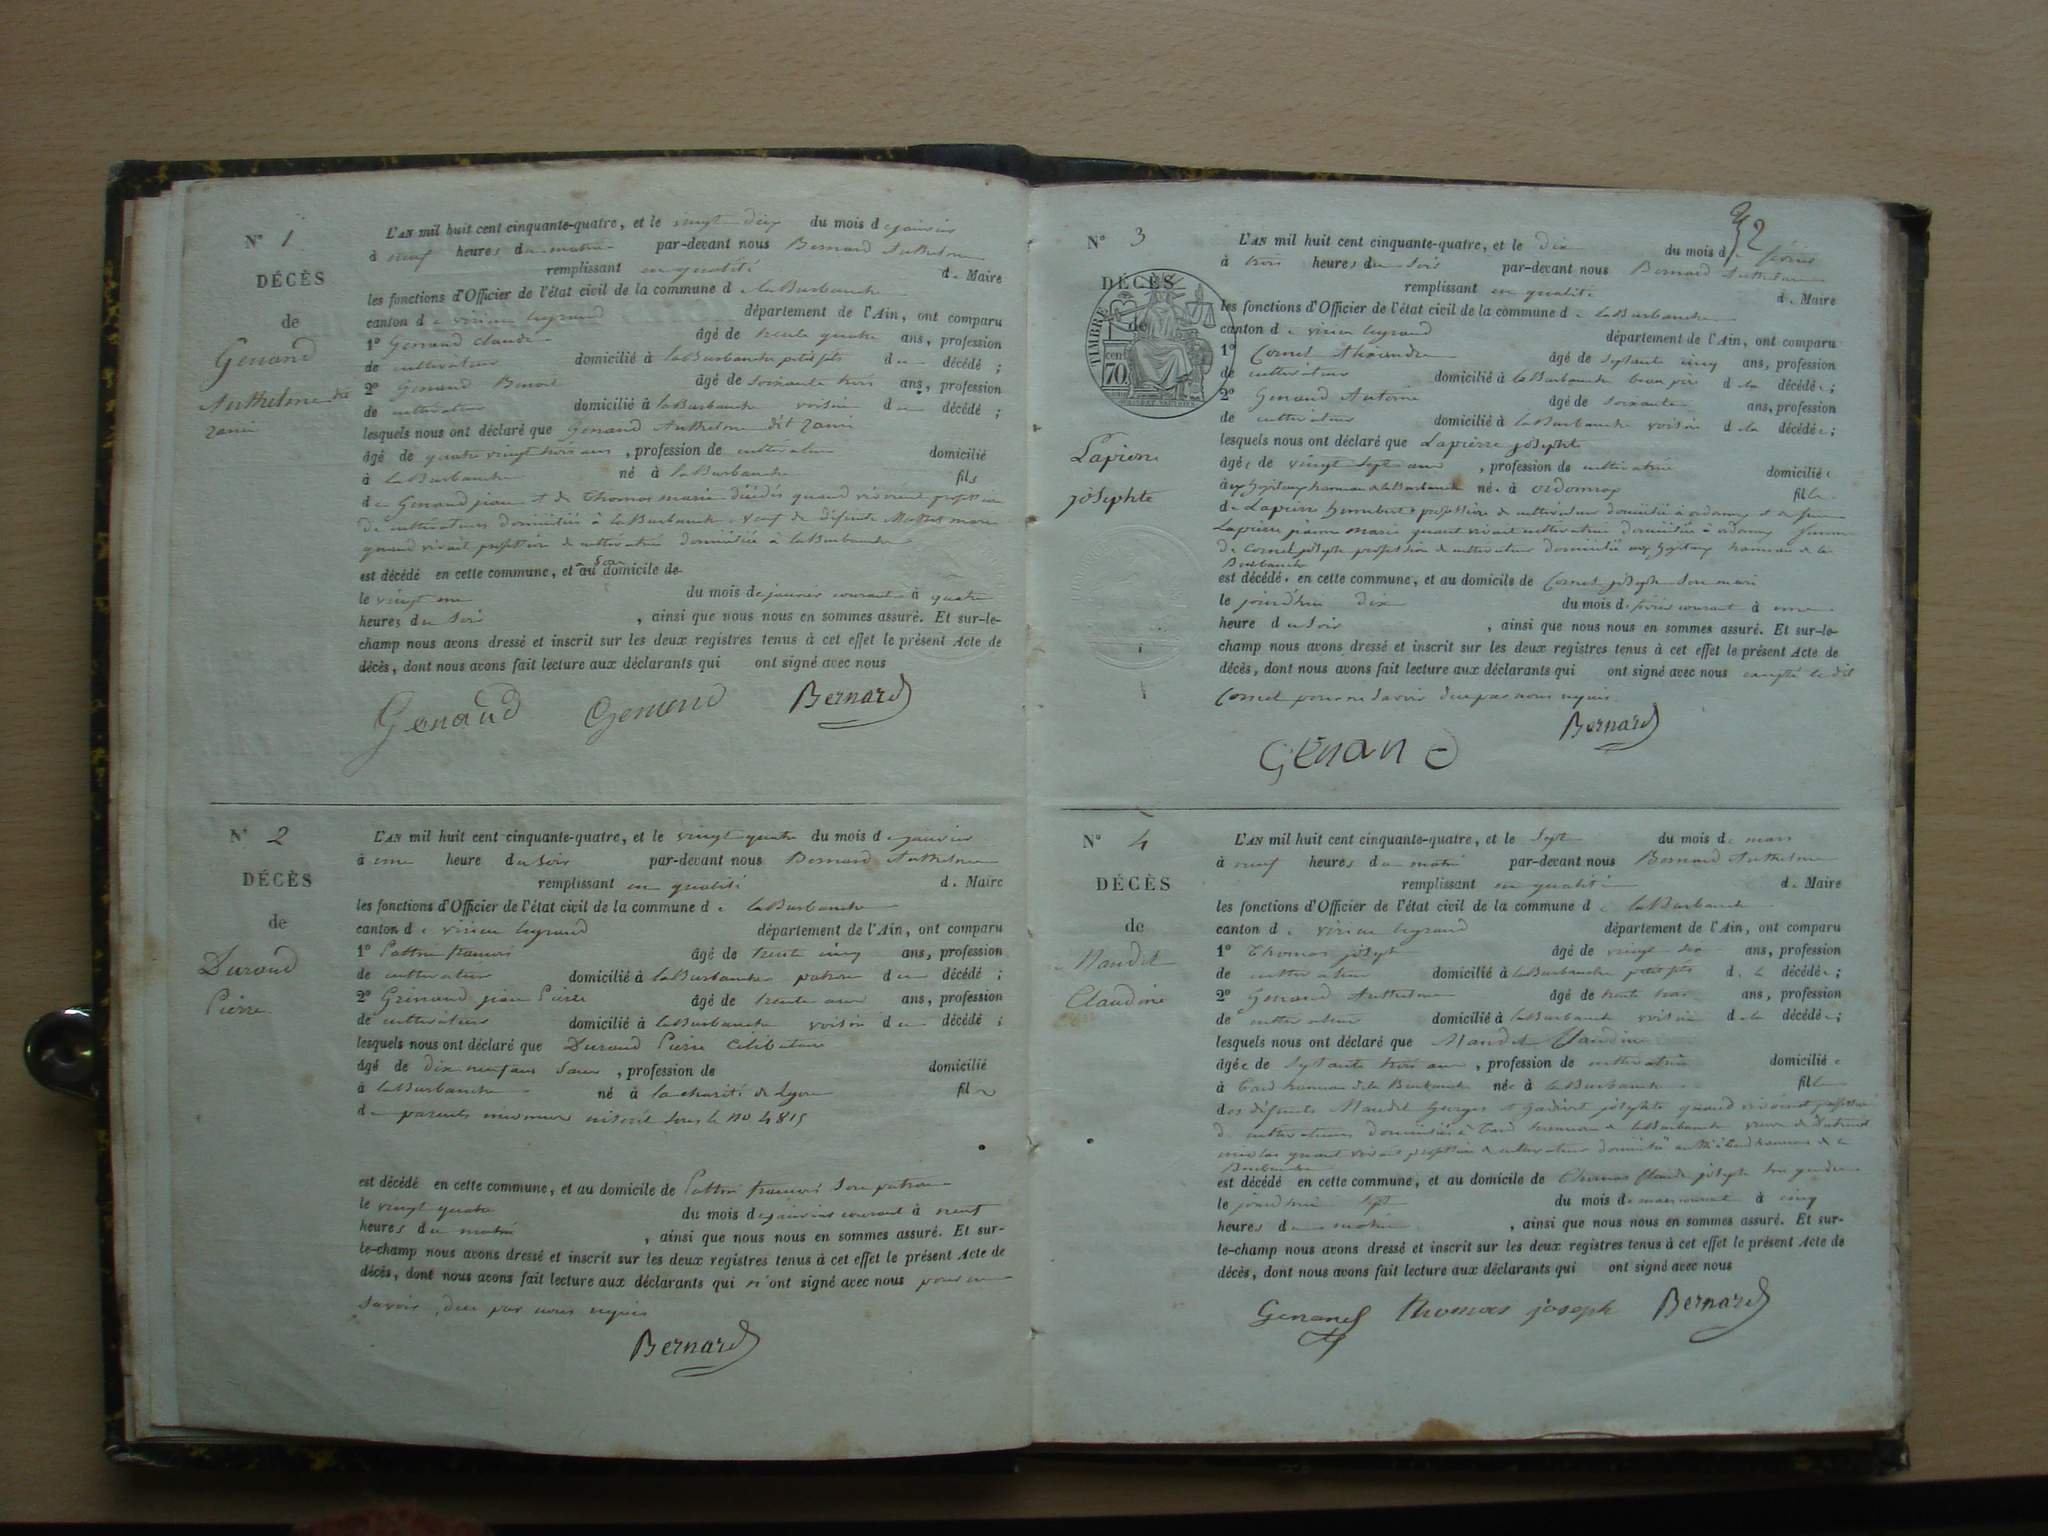 N° 1
DÉCÈS
de
Genand
Anthelme dit
L'AN mil huit cent cinquante-quatre, et le vingt deux du mois de janvier
à neuf heures du matin par-devant nous Bernard Anthelme
remplissant en qualité de Maire
les fonctions d'Officier de l'état civil de la commune de la Burbanche
canton de virieu legrand département de l'Ain, ont comparu
1° Genand claude âgé de trente quatre ans, profession
de cultivateur domicilié à la Burbanche petit fils du décédé ;
2° Genand Benoit âgé de soixante trois ans, profession
de cultivateur domicilié à la Burbanche voisin du décédé ;
lesquels nous ont déclaré que Genand Anthelme dit
âgé de quatre vingt trois ans, profession de cultivateur domicilié
à la Burbanche né à la Burbanche fils
de Genand jean et de Thomas marie décédés quand vivoient profession
de cultivateurs domiciliés à la Burbanche veuf de défunte marie
quand vivait profession de cultivatrice domiciliée à la Burbanche
est décédé en cette commune, et à son domicile
le vingt un du mois de janvier courant à quatre
heures du soir, ainsi que nous nous en sommes assuré. Et sur-le-
champ nous avons dressé et inscrit sur les deux registres tenus à cet effet le présent Acte de
décès, dont nous avons fait lecture aux déclarants qui ont signé avec nous
Genand Genand Bernard
N° 2
DÉCÈS
de
Durand
Pierre
L'AN mil huit cent cinquante-quatre, et le vingt quatre du mois de janvier
à une heure du soir par-devant nous Bernard Anthelme
remplissant en qualité de Maire
les fonctions d'Officier de l'état civil de la commune de la Burbanche
canton de virieu legrand département de l'Ain, ont comparu
1° françois âgé de trente cinq ans, profession
de cultivateur domicilié à la Burbanche patron du décédé ;
2° jean Pierre âgé de trente ans, profession
de cultivateur domicilié à la Burbanche voisin du décédé ;
lesquels nous ont déclaré que Durand Pierre Célibataire
âgé de dix neuf ans sans, profession de domicilié
à la Burbanche né à la charité de Lyon fils
de parents inconnus inscrit sous le no 4815
est décédé en cette commune, et au domicile de françois son patron
le vingt quatre du mois de janvier courant à neuf
heures du matin, ainsi que nous nous en sommes assuré. Et sur-
le-champ nous avons dressé et inscrit sur les deux registres tenus à cet effet le présent Acte de
décès, dont nous avons fait lecture aux déclarants qui n'ont signé avec nous pour ne
savoir, de par nous requis
Bernard
32
N° 3
DÉCÈS
de
TIMBRE
cent
70
Lapierre
josephte
L'AN mil huit cent cinquante-quatre, et le dix du mois de février
à trois heures du soir par-devant nous Bernard Anthelme
remplissant en qualité de Maire
les fonctions d'Officier de l'état civil de la commune de la Burbanche
canton de virieu legrand département de l'Ain, ont comparu
1° Cornet Alexandre âgé de septante cinq ans, profession
de cultivateur domicilié à la Burbanche beau père de la décédée ;
2° Genand Antoine âgé de soixante ans, profession
de cultivateur domicilié à la Burbanche voisin de la décédée ;
lesquels nous ont déclaré que Lapierre josephte
âgée de vingt sept ans, profession de cultivatrice domiciliée
hameau de la Burbanche née à ordonnaz fille
de Lapierre humbert profession de cultivateur domicilié à ordonnaz et de
Lapierre marie quand vivait cultivatrice domiciliée à ordonnaz femme
de Cornet joseph profession de cultivateur domicilié hameau de la
Burbanche
est décédée en cette commune, et au domicile de Cornet joseph son mari
le jourd'hui dix du mois de février courant à une
heure du soir, ainsi que nous nous en sommes assuré. Et sur-le-
champ nous avons dressé et inscrit sur les deux registres tenus à cet effet le présent Acte de
décès, dont nous avons fait lecture aux déclarants qui ont signé avec nous excepté le dit
Cornet pour ne savoir de par nous requis
Bernard
GENAND
N° 4
DÉCÈS
de
Mandet
Claudine
L'AN mil huit cent cinquante-quatre, et le sept du mois de mars
à neuf heures du matin par-devant nous Bernard Anthelme
remplissant en qualité de Maire
les fonctions d'Officier de l'état civil de la commune de la Burbanche
canton de virieu legrand département de l'Ain, ont comparu
1° Thomas joseph âgé de vingt ans, profession
de cultivateur domicilié à la Burbanche petit fils de la décédée ;
2° Genand Anthelme âgé de trente ans, profession
de cultivateur domicilié à la Burbanche voisin de la décédée ;
lesquels nous ont déclaré que Mandet Claudine
âgée de septante trois ans, profession de cultivatrice domiciliée
à hameau de la Burbanche née à la Burbanche fille
des défunts Mandet Georges et josephte quand vivoient profession
de cultivateurs domiciliés à hameau de la Burbanche veuve de
nicolas quand vivait profession de cultivateur domicilié hameau de la
Burbanche
est décédée en cette commune, et au domicile de Thomas Claude joseph son gendre
le jourd'hui sept du mois de mars courant à cinq
heures du matin, ainsi que nous nous en sommes assuré. Et sur-
le-champ nous avons dressé et inscrit sur les deux registres tenus à cet effet le présent Acte de
décès, dont nous avons fait lecture aux déclarants qui ont signé avec nous
Genand Thomas joseph Bernard